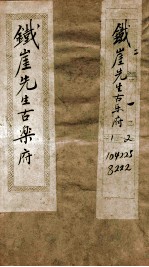 鐵崖先生古樂府
鐵崖先生古乐府
一 二
1 2
104225
8222